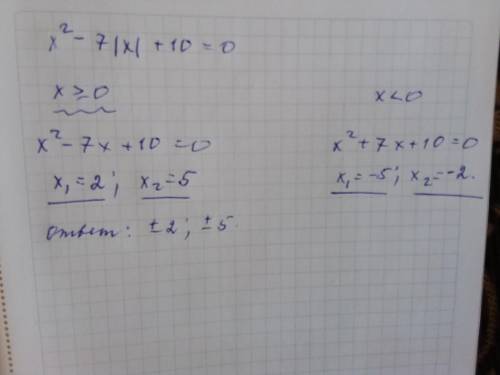 x² - 7|x| + 10 = 0
x ≥ 0
x < 0
x² - 7x + 10 = 0
x² + 7x + 10 = 0
x₁ = 2; x₂ = 5
x₁ = -5; x₂ = -2.
ответ: ±2; ±5.